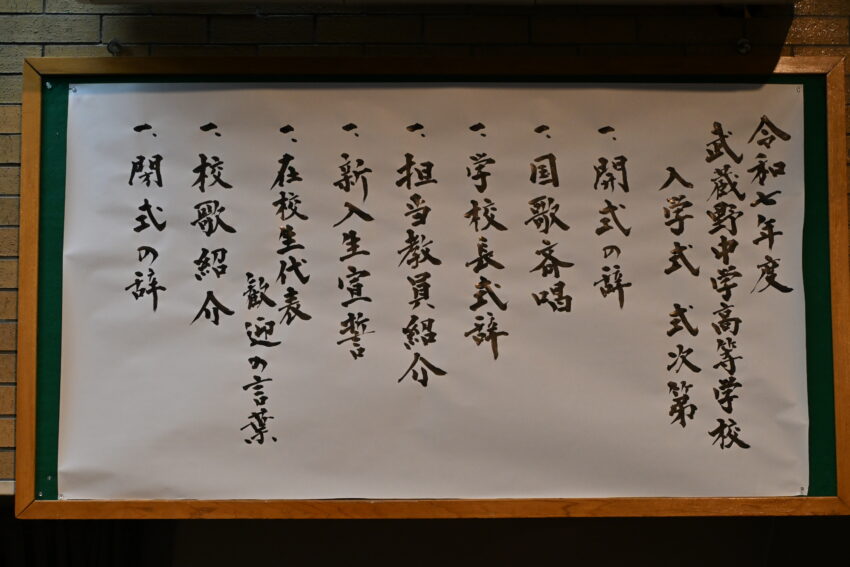 令和七年度
武蔵野中学高等学校
入学式 式次第
一、開式の辞
一、国歌斉唱
一、学校長式辞
一、担当教員紹介
一、新入生宣誓
一、在校生代表
歓迎の言葉
一、校歌紹介
一、閉式の辞